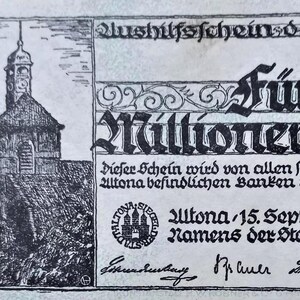 Aushilfsschein d
Fün
Millionen
Dieser Schein wird von allen
Altona befindlichen Banken
Altona · 15. Sep
Namens der Sta